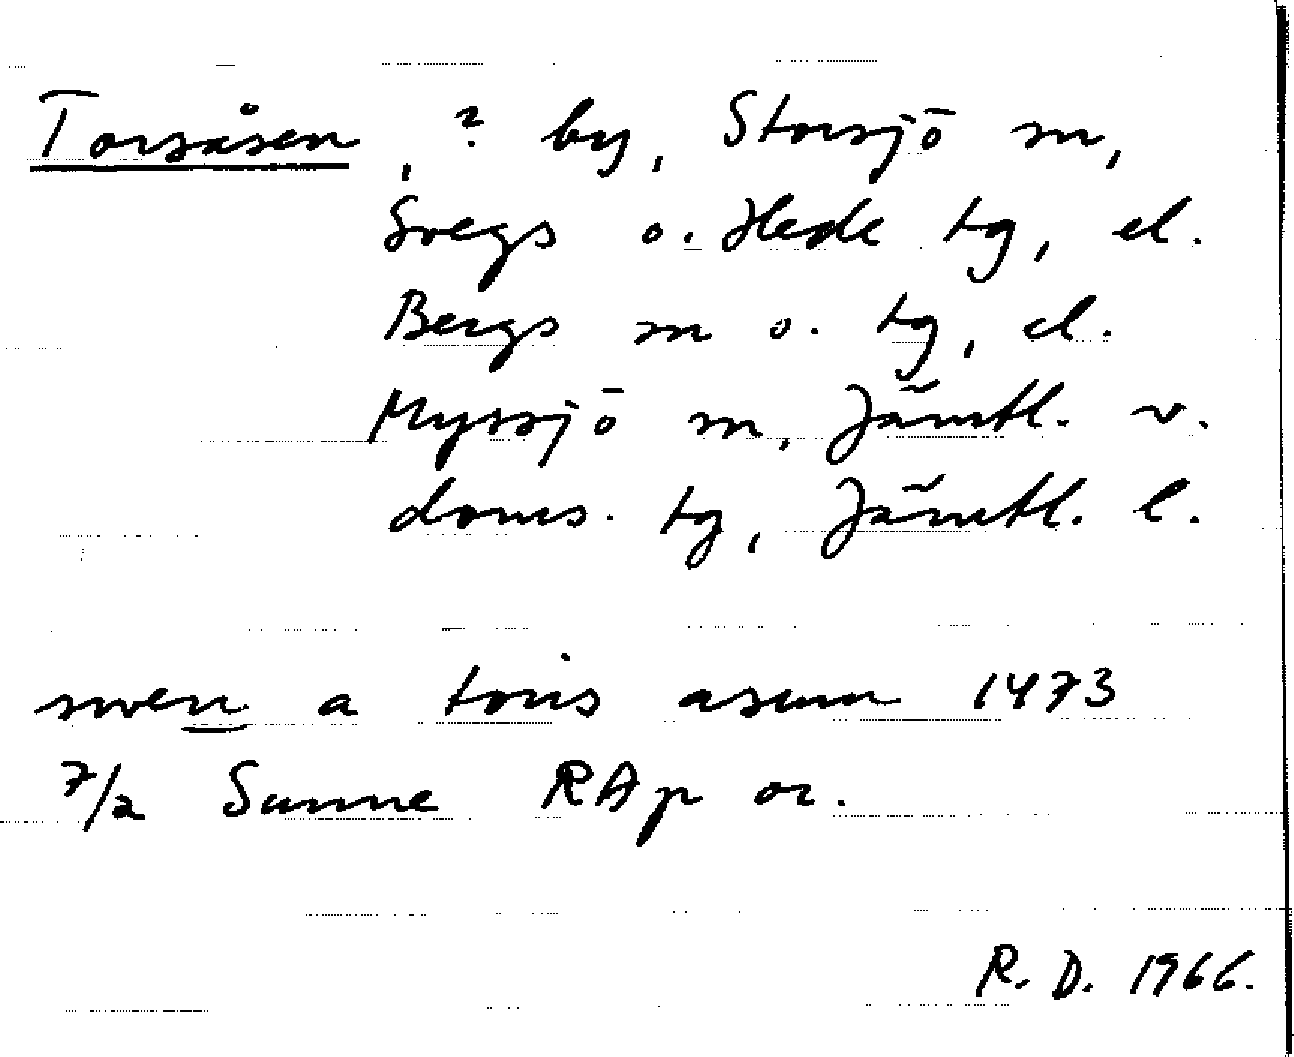 Torsåsen, ? by, Storsjö sn,
Svegs o. Hede tg, el.
Bergs sn o. tg, el.
Myssjö sn, Jämtl. v.
doms. tg, Jämtl. l.
swen a toris asum 1473
7/2 Sunne RAp or.
R. D. 1966.